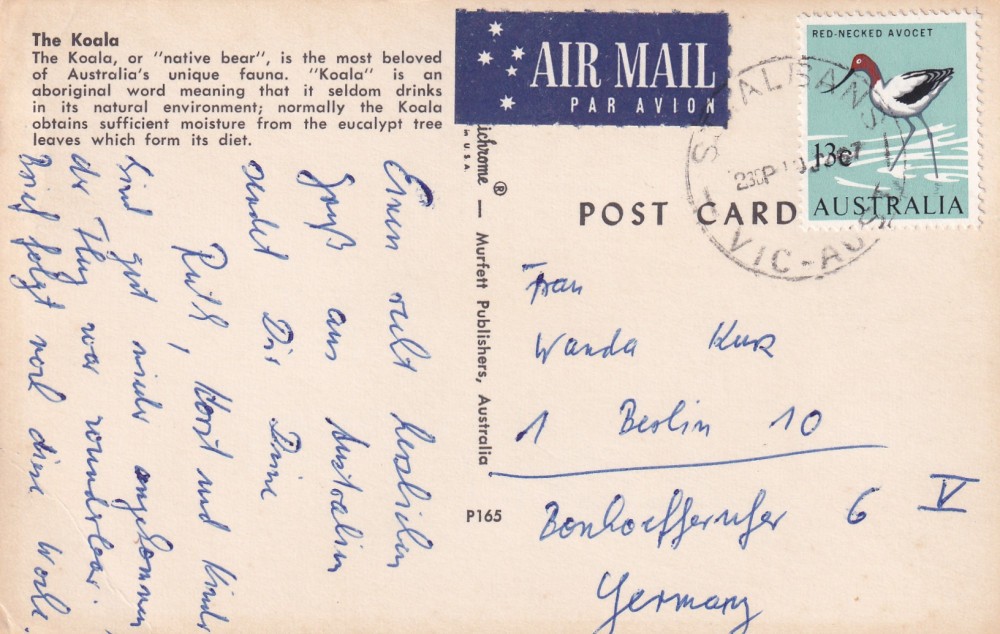 The Koala
The Koala, or "native bear", is the most beloved
of Australia's unique fauna. "Koala" is an
aboriginal word meaning that it seldom drinks
in its natural environment; normally the Koala
obtains sufficient moisture from the eucalypt tree
leaves which form its diet.
AIR MAIL
PAR AVION
RED-NECKED AVOCET
13c
AUSTRALIA
ST ALBANS
230P
67
VIC-AUST
POST CARD
ichrome ® — Murfett Publishers, Australia
in U.S.A.
P165
Einen recht herzlichen
Gruß aus Australien
sendet Dir Deine
Ruth, Horst und Kinder
Sind gut wieder angekommen
der Flug war wunderbar.
Brief folgt noch diese Woche.
Frau
Wanda Kurz
1 Berlin 10
Bonhoefferufer 6 V
Germany